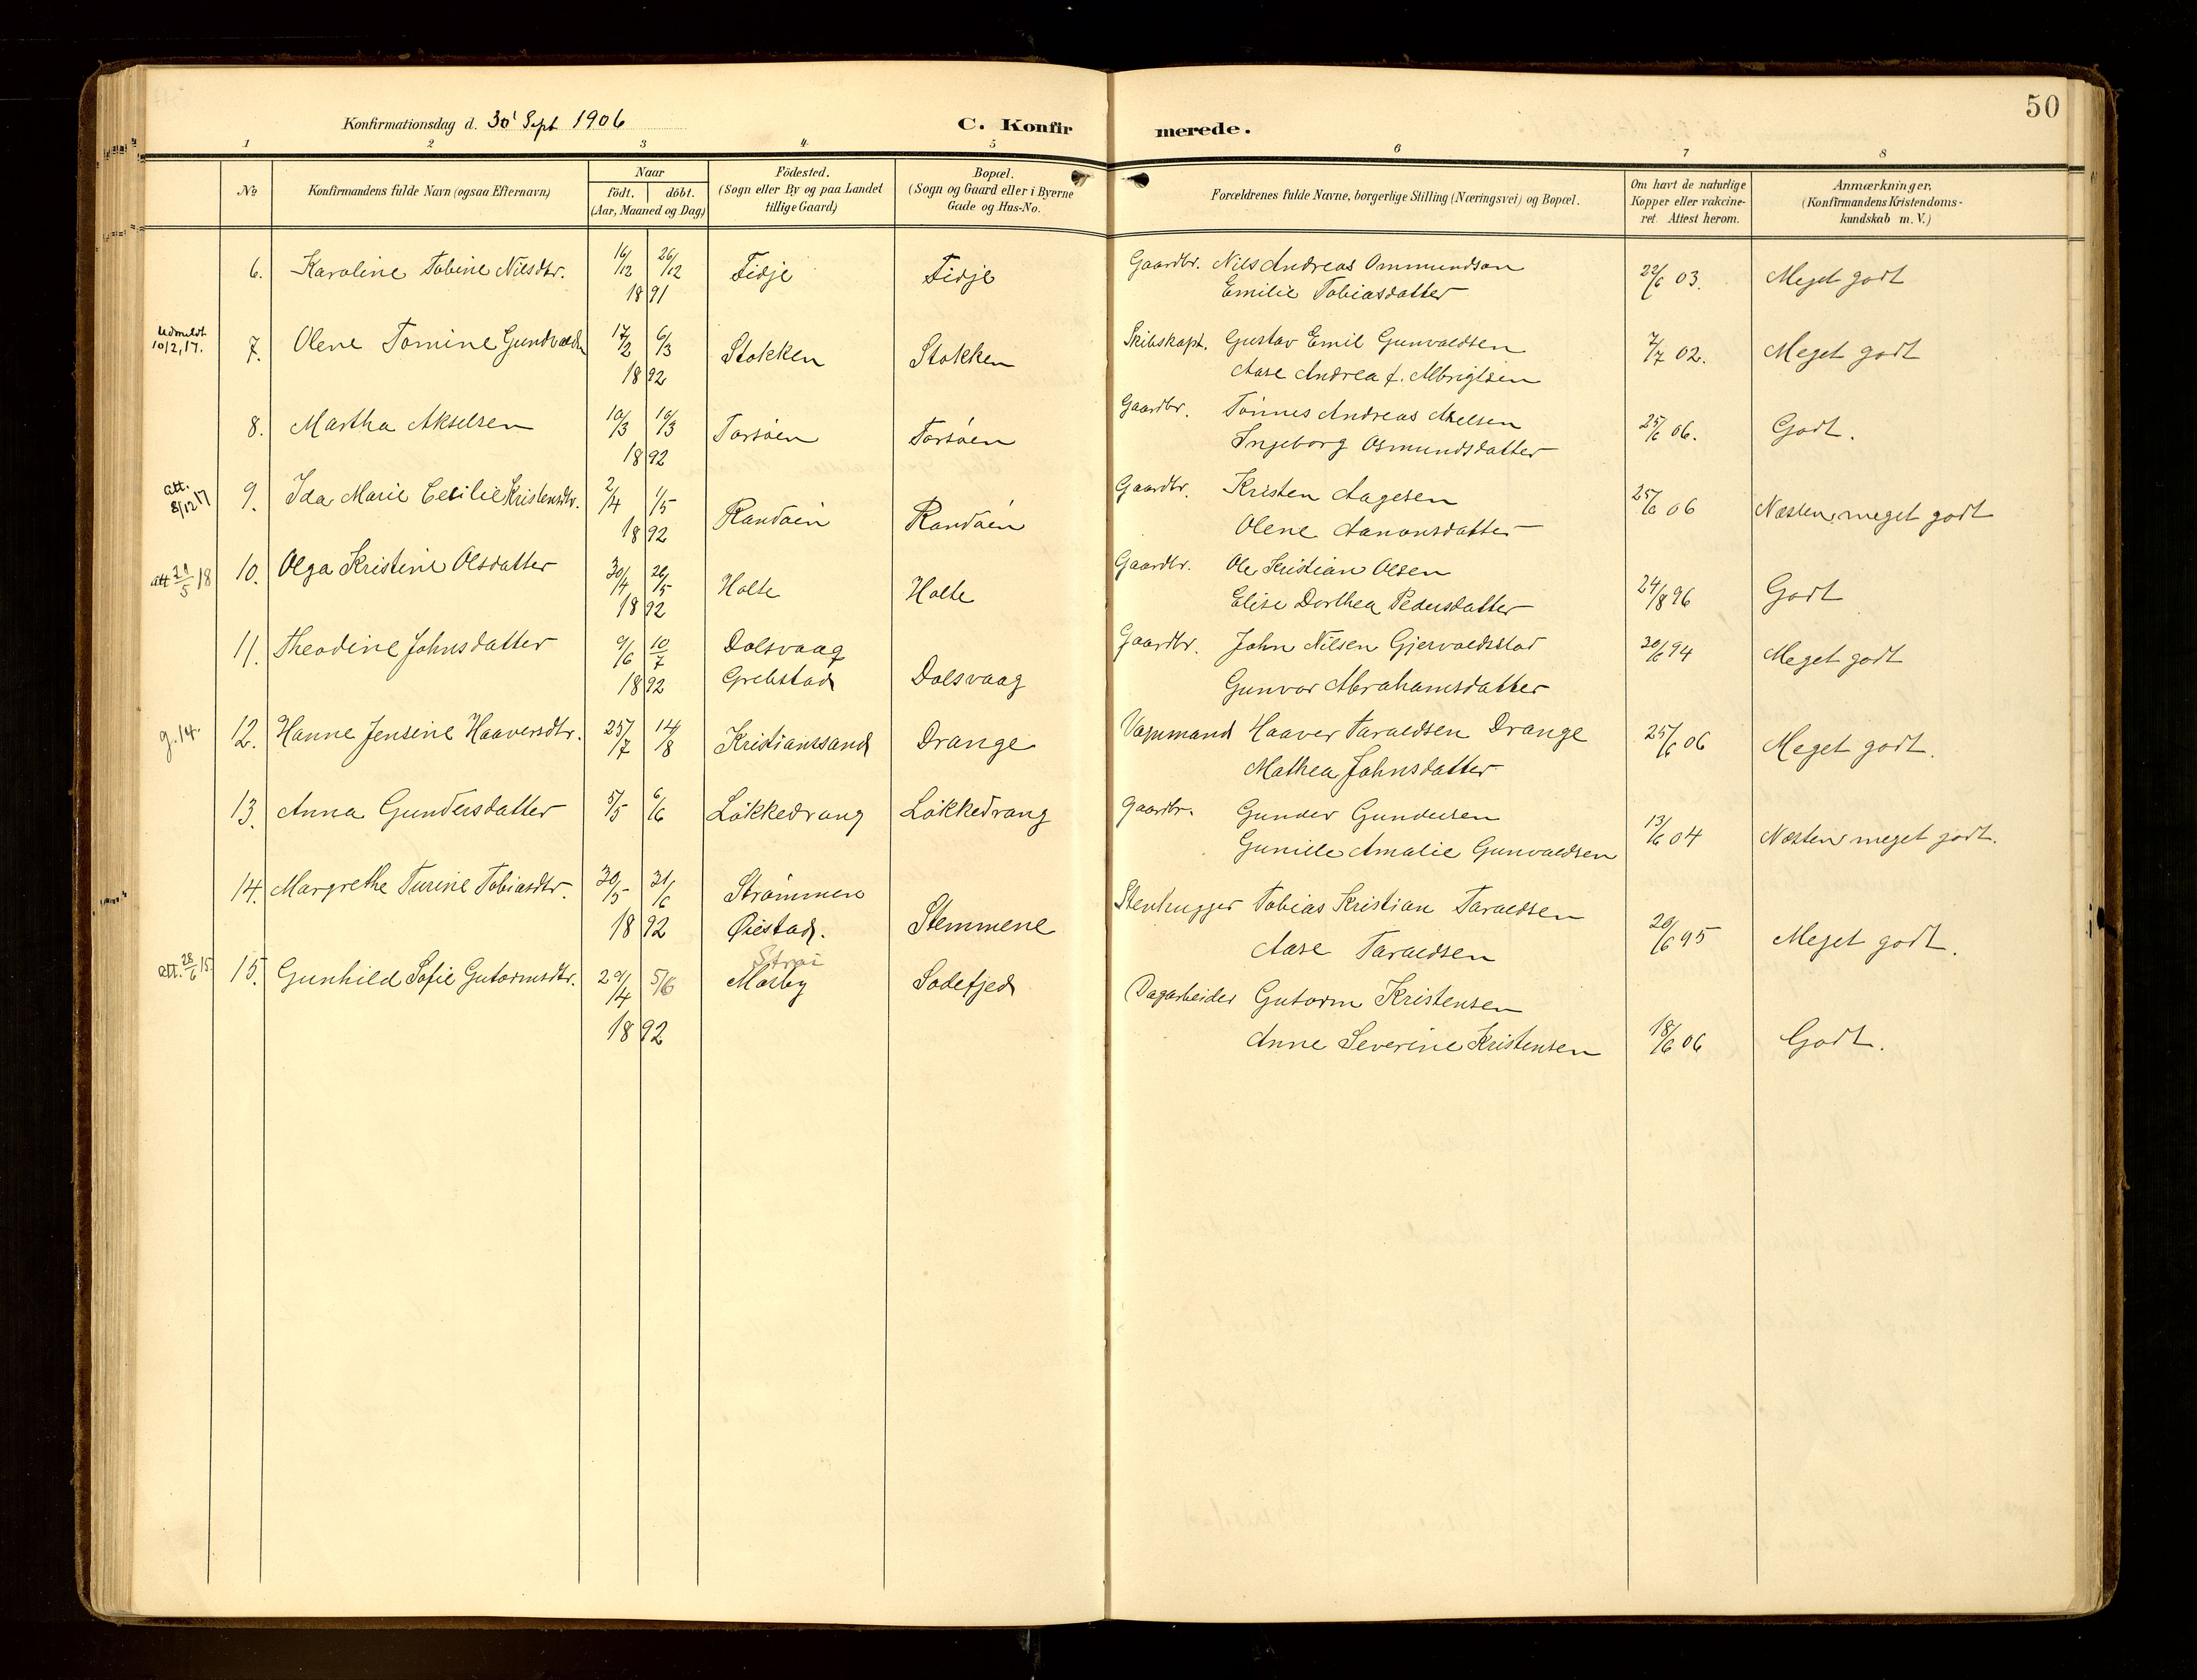 50
Konfirmationsdag d. 30' Sept 1906
C. Konfirmerede.
1 2 3 4 5 6 7 8
No Konfirmandens fulde Navn (ogsaa Efternavn) Naar født. døbt. (Aar, Maaned og Dag) Födested. (Sogn eller By og paa Landet tillige Gaard) Bopæl. (Sogn og Gaard eller i Byerne Gade og Hus-No. Forældrenes fulde Navne, borgerlige Stilling (Næringsvei) og Bopæl. Om havt de naturlige Kopper eller vakcineret. Attest herom. Anmærkninger. (Konfirmandens Kristendomskundskab m. V.)
6. Karoline Tobine Nilsdtr. 16/12 26/12 Tidje Tidje Gaardbr. Nils Andreas Ommundsen 22/6 03. Meget godt
1891 Emilie Tobiasdatter
Udmeldt 10/2, 17. 7. Olene Tomine Gundvalds 17/2 6/3 Stokken Stokken Skibskapt. Gustav Emil Gunvaldsen 7/7 02. Meget godt
1892 Aase Andrea f. Albrigtsen
8. Martha Akselsen 10/3 10/3 Torsøen Torsøen Gaardbr. Tønnes Andreas Akselsen 25/6 06. Godt.
1892 Ingeborg Osmundsdatter
Att. 8/12 17 9. Ida Marie Cecilie Kristensdtr. 2/4 1/5 Randøen Randøen Gaardbr. Kristen Aagesen 25/6 06 Næsten meget godt
1892 Olene Aanonsdatter
att 21/5 18 10. Olga Kristine Olsdatter 30/4 26/5 Holte Holte Gaardbr. Ole Kristian Olsen
1892 Elise Dorthea Pedersdatter 24/8 96 Godt
11. Theodine Johnsdatter 9/6 10/7 Dolsvaag Gaardbr. John Nilsen Gjervoldsstad 20/6 94 Meget godt
1892 Grebstad Dolsvaag Gunvor Abrahamsdatter
g. 14. 12. Hanne Jensine Haaversdtr. 25/7 14/8 Kristianssand Drange Vognmand Haaver Taraldsen Drange 25/6 06 Meget godt.
Mathea Johnsdatter
13. Anna Gundersdatter 5/5 6/6 Løkkedrang Løkkedrang Gaardbr. Gunder Gundersen 13/6 04 Næsten meget godt.
Gunille Amalie Gunvaldsen
14. Margrethe Turine Tobiasdtr. 30/5 21/6 Strømmen Stenhugger Tobias Kristian Taraldsen
1892 Øiestad. Stemmene Aase Taraldsen 20/6 95 Meget godt.
Strai
att. 28/6 15 15. Gunhild Sofie Gutormsdtr. 29/4 5/6 Mosby Sodefjed Dagarbeider Gutorm Kristensen
1892 Anne Severine Kristensen 18/6 06 Godt.